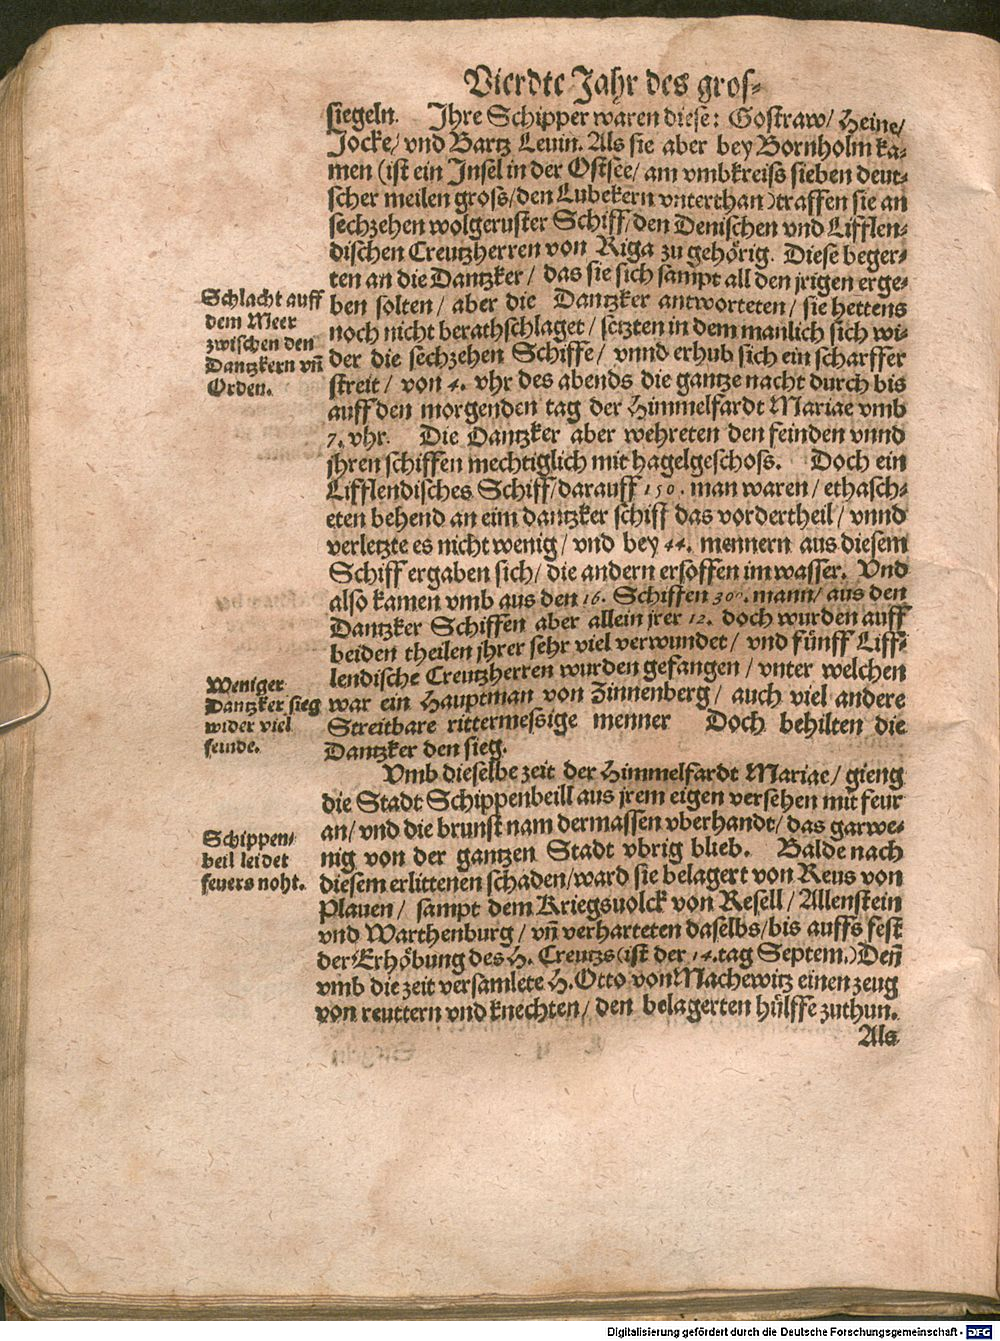 Vierdte Jahr des gros-
siegeln. Jhre Schipper waren diese: Gostraw/ Heine/
Jocke/ vnd Bartz Leuin. Als sie aber bey Bornholm ka-
men (ist ein Jnsel in der Ostsee/ am vmbkreiss sieben deut-
scher meilen gross/den Lubekern vnterthan) traffen sie an
sechzehen wolgeruster Schiff/den Denischen vnd Lifflen-
dischen Creutzherren von Riga zu gehörig. Diese beger-
ten an die Dantzker/ das sie sich sampt all den jrigen erge-
ben solten/ aber die Dantzker antworteten/ sie hettens
noch nicht berathschlaget/ setzten in dem manlich sich wi-
der die sechzehen Schiffe/ vnnd erhub sich ein scharffer
streit/ von 4. vhr des abends die gantze nacht durch bis
auff den morgenden tag der Himmelfardt Mariae vmb
7. vhr. Die Dantzker aber wehreten den feinden vnnd
jhren schiffen mechtiglich mit hagelgeschoss. Doch ein
Lifflendisches Schiff/darauff 150. man waren/ ethasch-
eten behend an eim dantzker schiff das vordertheil/ vnnd
verletzte es nicht wenig/ vnd bey 44. mennern aus diesem
Schiff ergaben sich/ die andern ersoffen im wasser. Vnd
also kamen vmb aus den 16. Schiffen 300. mann/ aus den
Dantzker Schiffen aber allein jrer 12. doch wurden auff
beiden theilen jhrer sehr viel verwundet/ vnd fünff Liff-
lendische Creutzherren wurden gefangen/ vnter welchen
war ein Hauptman von Zinnenberg/ auch viel andere
Streitbare rittermessige menner Doch behilten die
Dantzker den sieg.
Schlacht auff
dem Meer
zwischen den
Dantzkern vñ
Orden.
Weniger
Dantzker sieg
wider viel
feinde.
Vmb dieselbe zeit der Himmelfardt Mariae/ gieng
die Stadt Schippenbeill aus jrem eigen versehen mit feur
an/ vnd die brunst nam dermassen vberhandt/ das gar we-
nig von der gantzen Stadt vbrig blieb. Balde nach
diesem erlittenen schaden/ward sie belagert von Reus von
Plauen/ sampt dem Kriegsuolck von Resell/ Allenstein
vnd Warthenburg/ vñ verharteten daselbs/bis auffs fest
der Erhöbung des H. Creutzs (ist der 14. tag Septem.) Deñ
vmb die zeit versamlete H. Otto von Machewitz einen zeug
von reuttern vnd knechten/ den belagerten hülffe zuthun.
Schippen-
beil leidet
feuers noht.
Als
Digitalisierung gefördert durch die Deutsche Forschungsgemeinschaft - DFG